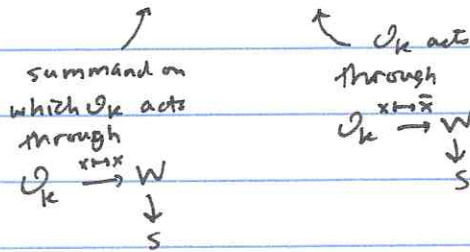 summand on
which 𝒪_K acts
through
𝒪_K x↦x → W
↓
S
𝒪_K acts
through
𝒪_K x↦x̄ → W
↓
S